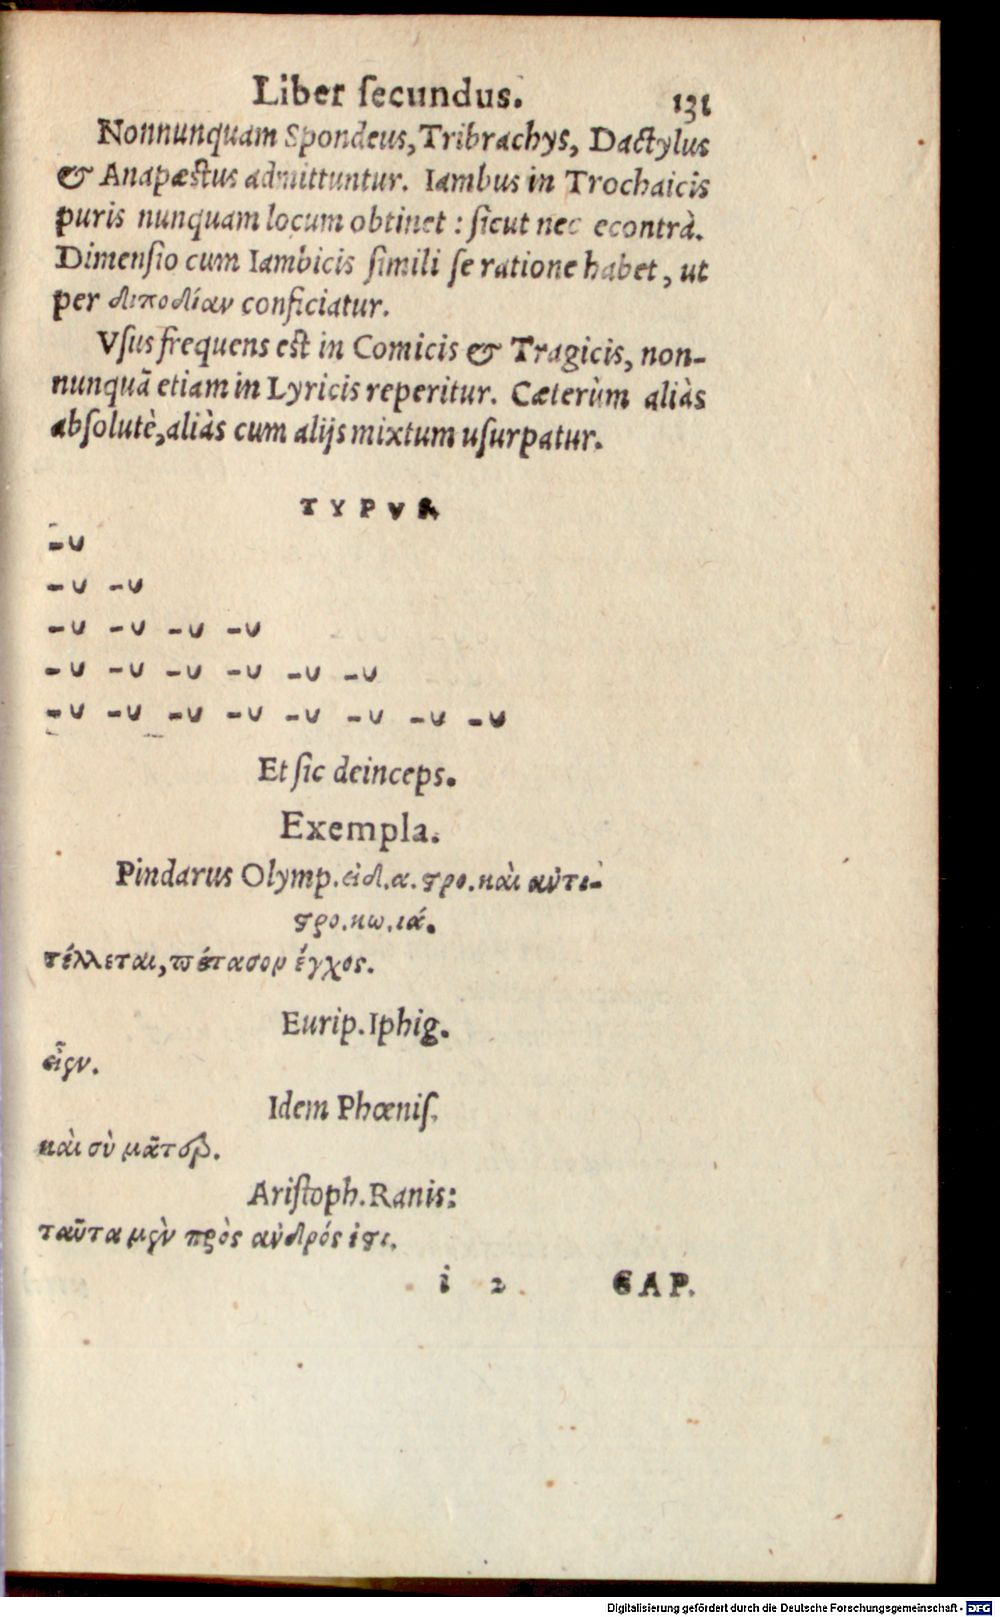 Liber ſecundus. 131
Nonnunquam Spondeus, Tribrachys, Dactylus
& Anapæstus admittuntur. Iambus in Trochaicis
puris nunquam locum obtinet : ſicut nec econtrà.
Dimenſio cum Iambicis ſimili ſe ratione habet, ut
per διποδίαν conficiatur.
Vſus frequens est in Comicis & Tragicis, non-
nunquã etiam in Lyricis reperitur. Cæterùm aliàs
abſolutè, aliàs cum alijs mixtum uſurpatur.
TYPVS.
-∪
-∪ -∪
-∪ -∪ -∪ -∪
-∪ -∪ -∪ -∪ -∪ -∪
-∪ -∪ -∪ -∪ -∪ -∪ -∪ -∪
Et ſic deinceps.
Exempla.
Pindarus Olymp. εἰδ. α. ϛρο. καὶ ἀντι-
ϛρο. κω. ιά.
τέλλεται, πέτασον ἔγχος.
Eurip. Iphig.
εἶεν.
Idem Phœniſ.
καὶ σὺ μᾶτερ.
Ariſtoph. Ranis:
ταῦτα μὲν πρὸς ἀνδρός ἐϛι.
i 2 CAP.
Digitalisierung gefördert durch die Deutsche Forschungsgemeinschaft - DFG